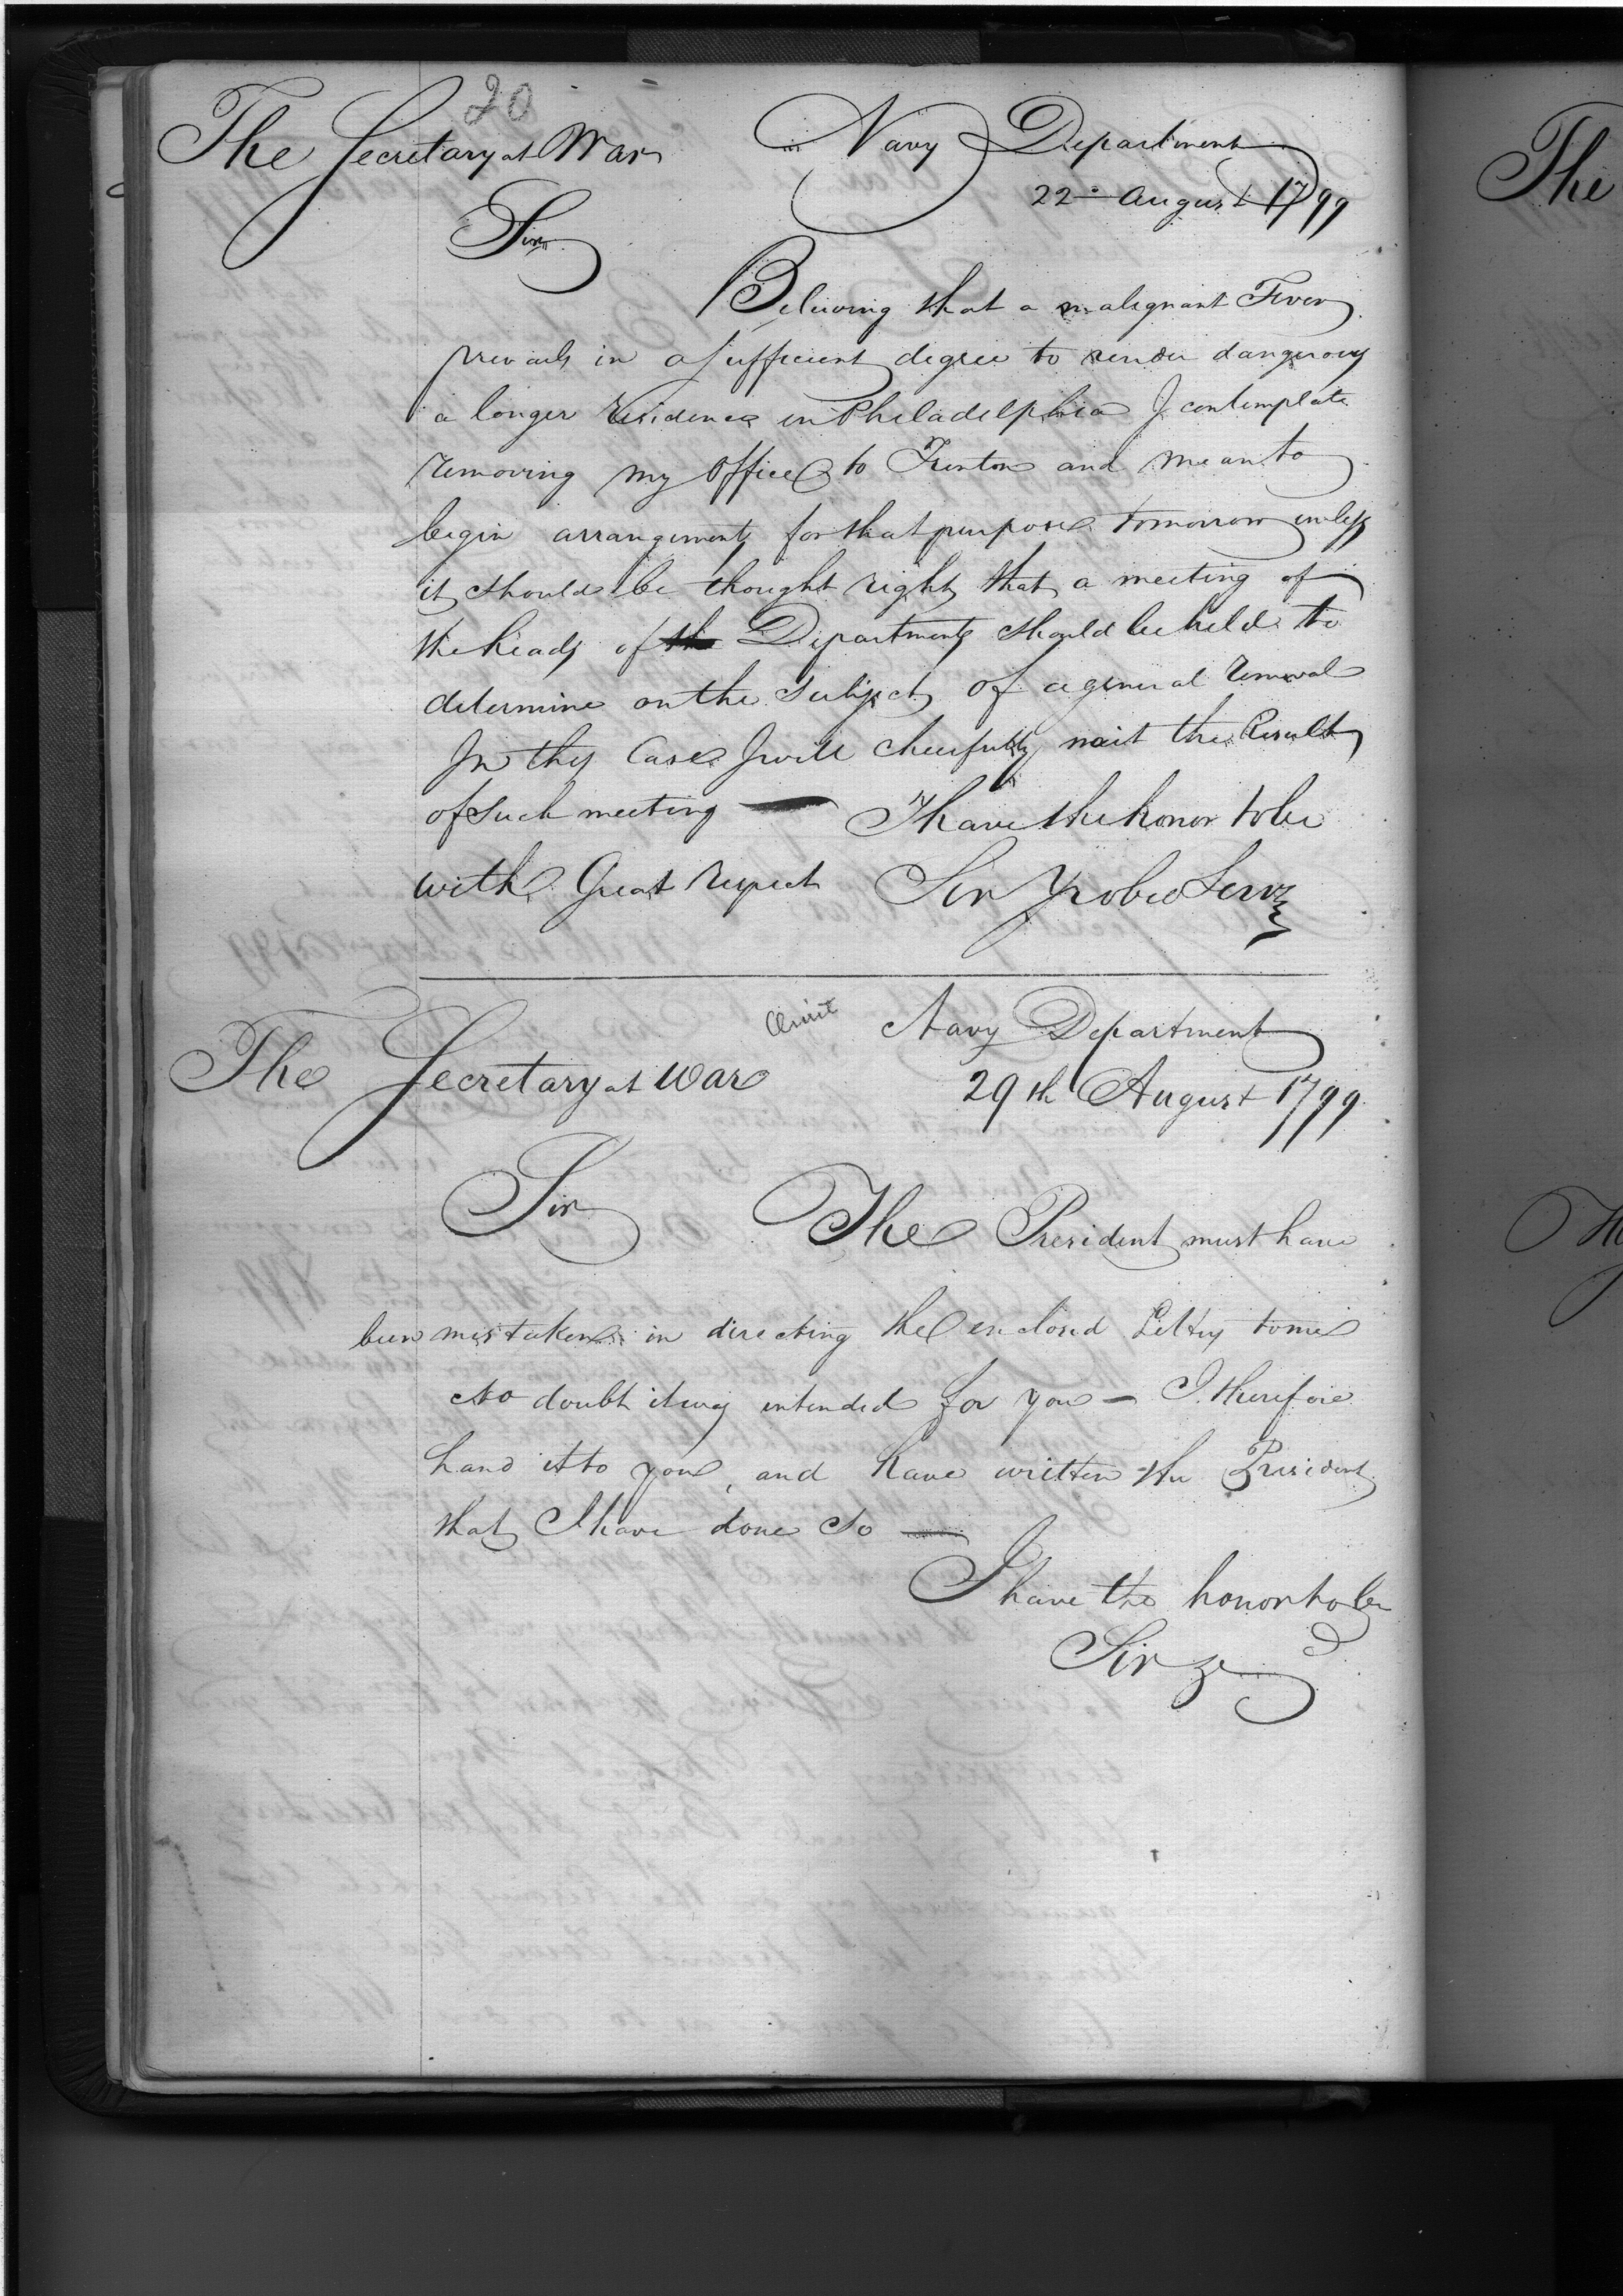 20
The Secretary at War
Navy Department
22d August 1799
Sir
Believing that a malignant Fever
prevails in a sufficient degree to render dangerous
a longer residence in Philadelphia I contemplate
removing my Office to Trenton and mean to
begin arrangements for that purpose tomorrow unless
it should be thought right that a meeting of
the heads of Departments should be held to
determine on the subject of a general removal
In this Case I will cheerfully wait the Result
of such meeting — I have the honor to be
with Great respect Sir Yr obed Servt
Omit
Navy Department
The Secretary at War
29th August 1799
Sir The President must have
been mistaken in directing the enclosed Letter to me
No doubt it was intended for you — I therefore
hand it to you, and have written the President
that I have done so —
I have the honor to be
Sir &c
The